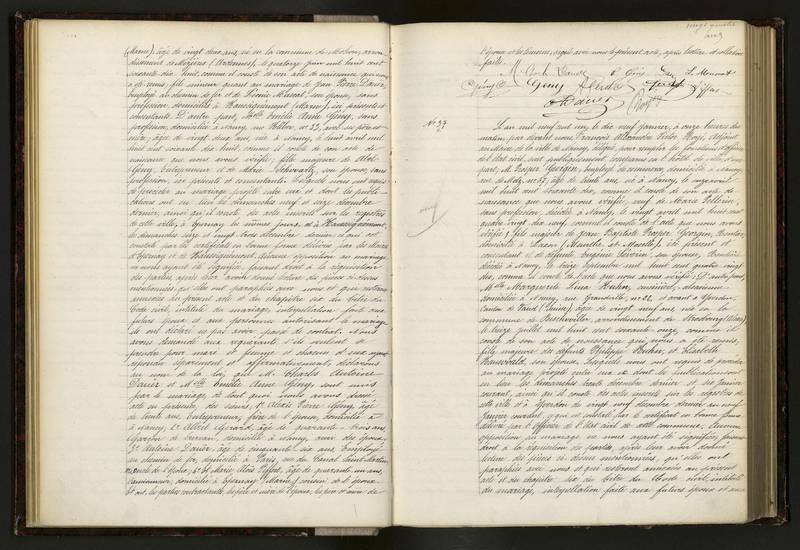 (Marne), âgé de vingt deux ans, né en la commune de Mohon, arron
dissement de Mézières (Ardennes), le quatorze juin mil huit cent
soixante dix huit, comme il conste de son acte de naissance qui nous
a été remis, fils mineur quant au mariage de Jean Pierre Darier,
employé au chemin de fer et de Léonie Mussat, son épouse, sans
profession, domiciliés à Haussignémont (Marne), ici présents et
consentants. D'autre part, Mlle Emélie Anne Gény, sans
profession, domiciliée à Nancy, rue Kléber, no 23, avec ses père et
mère, âgée de vingt deux ans, née à Nancy, le huit avril mil
huit cent soixante dix huit, comme il conste de son acte de
naissance que nous avons vérifié, fille majeure de
Gény, Entrepreneur et de Schwartz, son épouse, sans
profession, ici présents et consentants. Lesquels nous ont requis
de procéder au mariage projeté entre eux et dont les publi-
cations ont eu lieu les dimanches neuf et seize décembre
dernier, ainsi qu'il conste des actes inscrits sur les registres
de cette ville, à Epernay les mêmes jours, et à Haussignémont,
les dimanches seize et vingt trois décembre dernier, ce qui est
constaté par les certificats en bonne forme délivrés par les Maires
d'Epernay et de Haussignémont. Aucune opposition au mariage
ne nous ayant été signifiée, faisant droit à la réquisition
des parties, après leur avoir donné lecture des pièces ci-dessus
mentionnées, qu'elles ont paraphées avec nous et qui resteront
annexées au présent acte et du chapitre six du titre du
Code civil, intitulé du mariage, interpellation faite aux
futurs époux et aux personnes autorisant le mariage
ils ont déclaré ne pas avoir passé de contrat. Nous
avons demandé aux requérants s'ils veulent se
prendre pour mari et femme et chacun d'eux ayant
répondu séparément et affirmativement, déclarons
au nom de la loi, que M. Charles Antoine
Darier et Mlle Emélie Anne Gény, sont unis
par le mariage, de tout quoi nous avons dressé
acte en présence des sieurs, 1o Alexis Pierre Gény, âgé
de trente ans, entrepreneur, frère de l'épouse, domicilié à
Nancy, 2o Albert Gérard, âgé de quarante-trois ans,
Garçon de bureau, domicilié à Nancy, ami des époux,
3o Antoine Darier, âgé de cinquante-six ans, Employé
au chemin de fer, domicilié à Paris, rue du Canal Saint-Martin,
oncle de l'époux, 4o et Marie, Alexis Piffard, âgé de quarante-un ans,
Camionneur, domicilié à Epernay (Marne), cousin de l'époux
Et ont, les parties contractantes, les père et mère de l'époux, les père et mère de
vingt quatre
l'épouse et les témoins, signé avec nous le présent acte, après lecture et collation
faite.
Gény
L. Mussat
Gérard
Darier
No 27
L'an mil neuf cent un, le dix neuf janvier, à onze heures du
matin, par devant nous François Alexandre Victor Royé, Adjoint
au Maire de la ville de Nancy, délégué, pour remplir les fonctions d'officier
de l'Etat civil, sont publiquement comparus en l'hôtel de ville, d'une
part, M. Prosper Georgin, Employé de commerce, domicilié à Nancy,
rue de Metz, no 67, âgé de trente ans, né à Nancy, le
mil huit cent soixante dix, comme il conste de son acte de
naissance que nous avons vérifié, veuf de Marie Pellerin,
sans profession, décédée à Nancy, le vingt avril mil huit cent
quatre vingt dix neuf, comme il conste de l'acte que nous avons
vérifié, fils majeur de Jean Baptiste Prosper Georgin, Rentier,
domicilié à Laxou (Meurthe et Moselle), ici présent et
consentant et de défunte Eugénie Séverin, son épouse, Rentière,
décédée à Nancy, le treize septembre mil huit cent quatre vingt
dix, comme il conste de l'acte que nous avons vérifié. D'autre part,
Mlle Marguerite Lina Huhn, cuisinière, alsacienne,
domiciliée à Nancy, rue Grandville, no 22, et avant à Yverdon,
Canton de Vaud (Suisse), âgée de vingt neuf ans, née en la
commune de Bischwiller, arrondissement de Strasbourg (Alsace)
le treize juillet mil huit cent soixante onze, comme il
conste de son acte de naissance qui nous a été remis,
fille majeure des défunts Philippe Huhn, et Charlotte
son épouse. Lesquels nous ont requis de procéder
au mariage projeté entre eux et dont les publications ont
eu lieu les dimanches trente décembre dernier et six janvier
courant, ainsi qu'il conste des actes inscrits sur les registres de
cette ville et à Yverdon du vingt neuf décembre dernier au neuf
janvier courant, ce qui est constaté par le certificat en bonne forme
délivré par l'officier de l'état civil de cette commune. Aucune
opposition au mariage ne nous ayant été signifiée, faisant
droit à la réquisition des parties, après leur avoir donné
lecture des pièces ci-dessus mentionnées, qu'elles ont
paraphées avec nous et qui resteront annexées au présent
acte et du chapitre six du titre du Code civil, intitulé
du mariage, interpellation faite aux futurs époux et aux